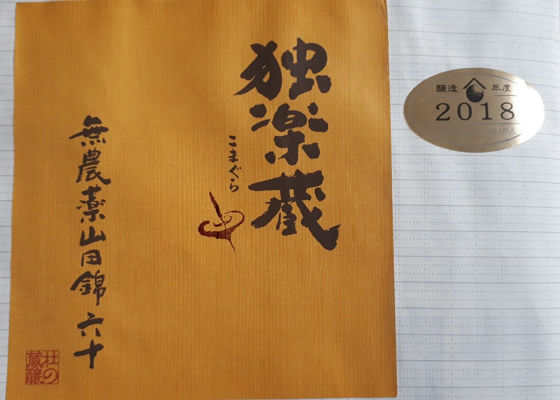 独楽蔵
こまぐら
無農薬山田錦六十
杜の蔵醸
醸造年度
2018